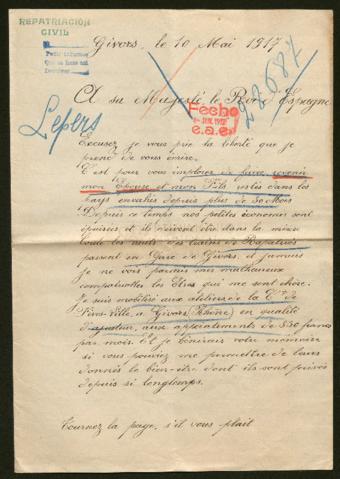 REPATRIACIÓN
CIVIL
Givors, le 10 Mai 1917
Lepers
22687
A sa Majesté le Roi d'Espagne
Fecho
e.a.e.
Excusez je vous prie la liberté que je
prend de vous écrire.
C'est pour vous implorer de faire revenir
mon Epouse et mon Fils restés dans les
pays envahis depuis plus de 30 Mois
Depuis ce temps nos petites économies sont
épuisées et ils doivent être dans la misère
toute les nuits des trains de Rapatriés
passent en Gare de Givors, et jamais
je ne vois parmis ces malheureux
compatriotes les Etres qui me sont chers.
Je suis mobilisé aux ateliers de la Cie de
Fives-Lille, à Givors (Rhône) en qualité
d'ajusteur, aux appointements de 850 francs
par mois. Et je bénirais votre mémoire
si vous pouviez me permettre de leurs
donnés le bien-être dont ils sont privés
depuis si longtemps.
Tournez la page, s'il vous plait